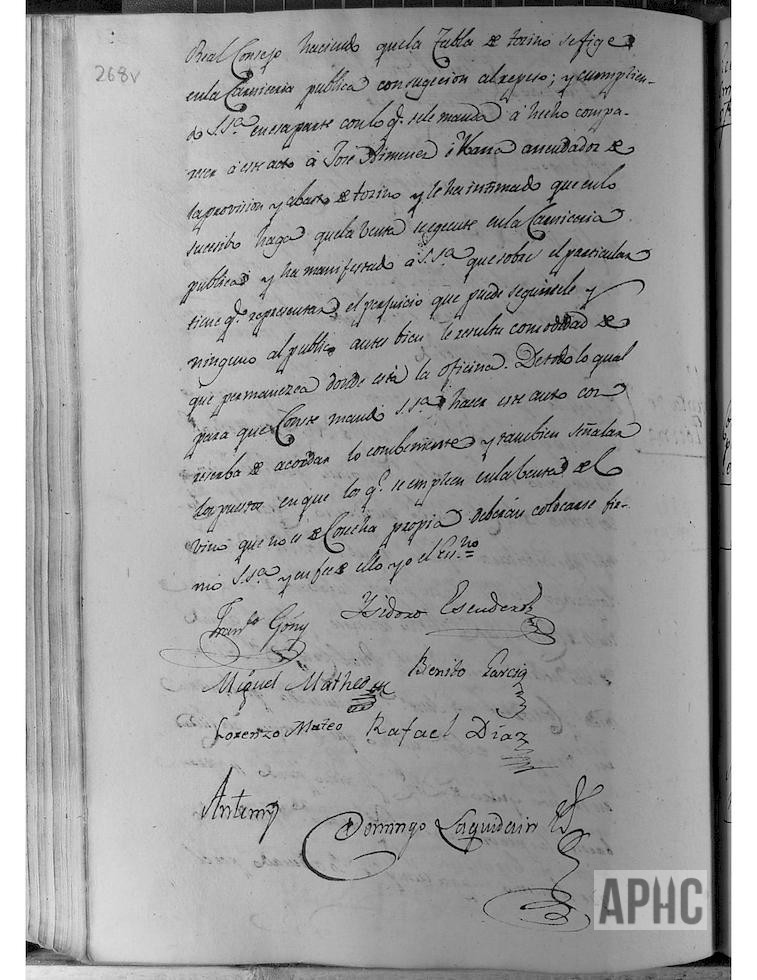 268v
Real Consejo haciendo que la Tabla de tozino se fige
en la Carniceria publica con sugecion al repeso; y cumplien-
do S.Sª en esa parte con lo q.e se le manda á hecho compa-
recer á este acto á José Ximenez é Viana arrendador de
la provision y abasto de tozino y le ha intimado que en lo
sucesibo haga que la benta se egecute en la Carniceria
publica y ha manifestado á S.Sª que sobre el particular
tiene q.e representar el perjuicio que puede seguirsele y
ninguno al publico antes bien le resulta comodidad de
que permanezca donde está la oficina. De todo lo qual
para que Conste mandó S.Sª hacer este auto con
reserba de acordar lo combeniente y tambien señalar
los puestos en que los q.e se empleen en la benta del
vino que no es de Cosecha propia deberán colocarse fir-
mó S.Sª y en fee de ello yo el Ess.no =
Fran.co Goñy Ysidoro Escudero
Miguel Matheo Benito Garcia
Lorenzo Mateo Rafael Díaz
Antemi
Domingo Laquidain
APHC